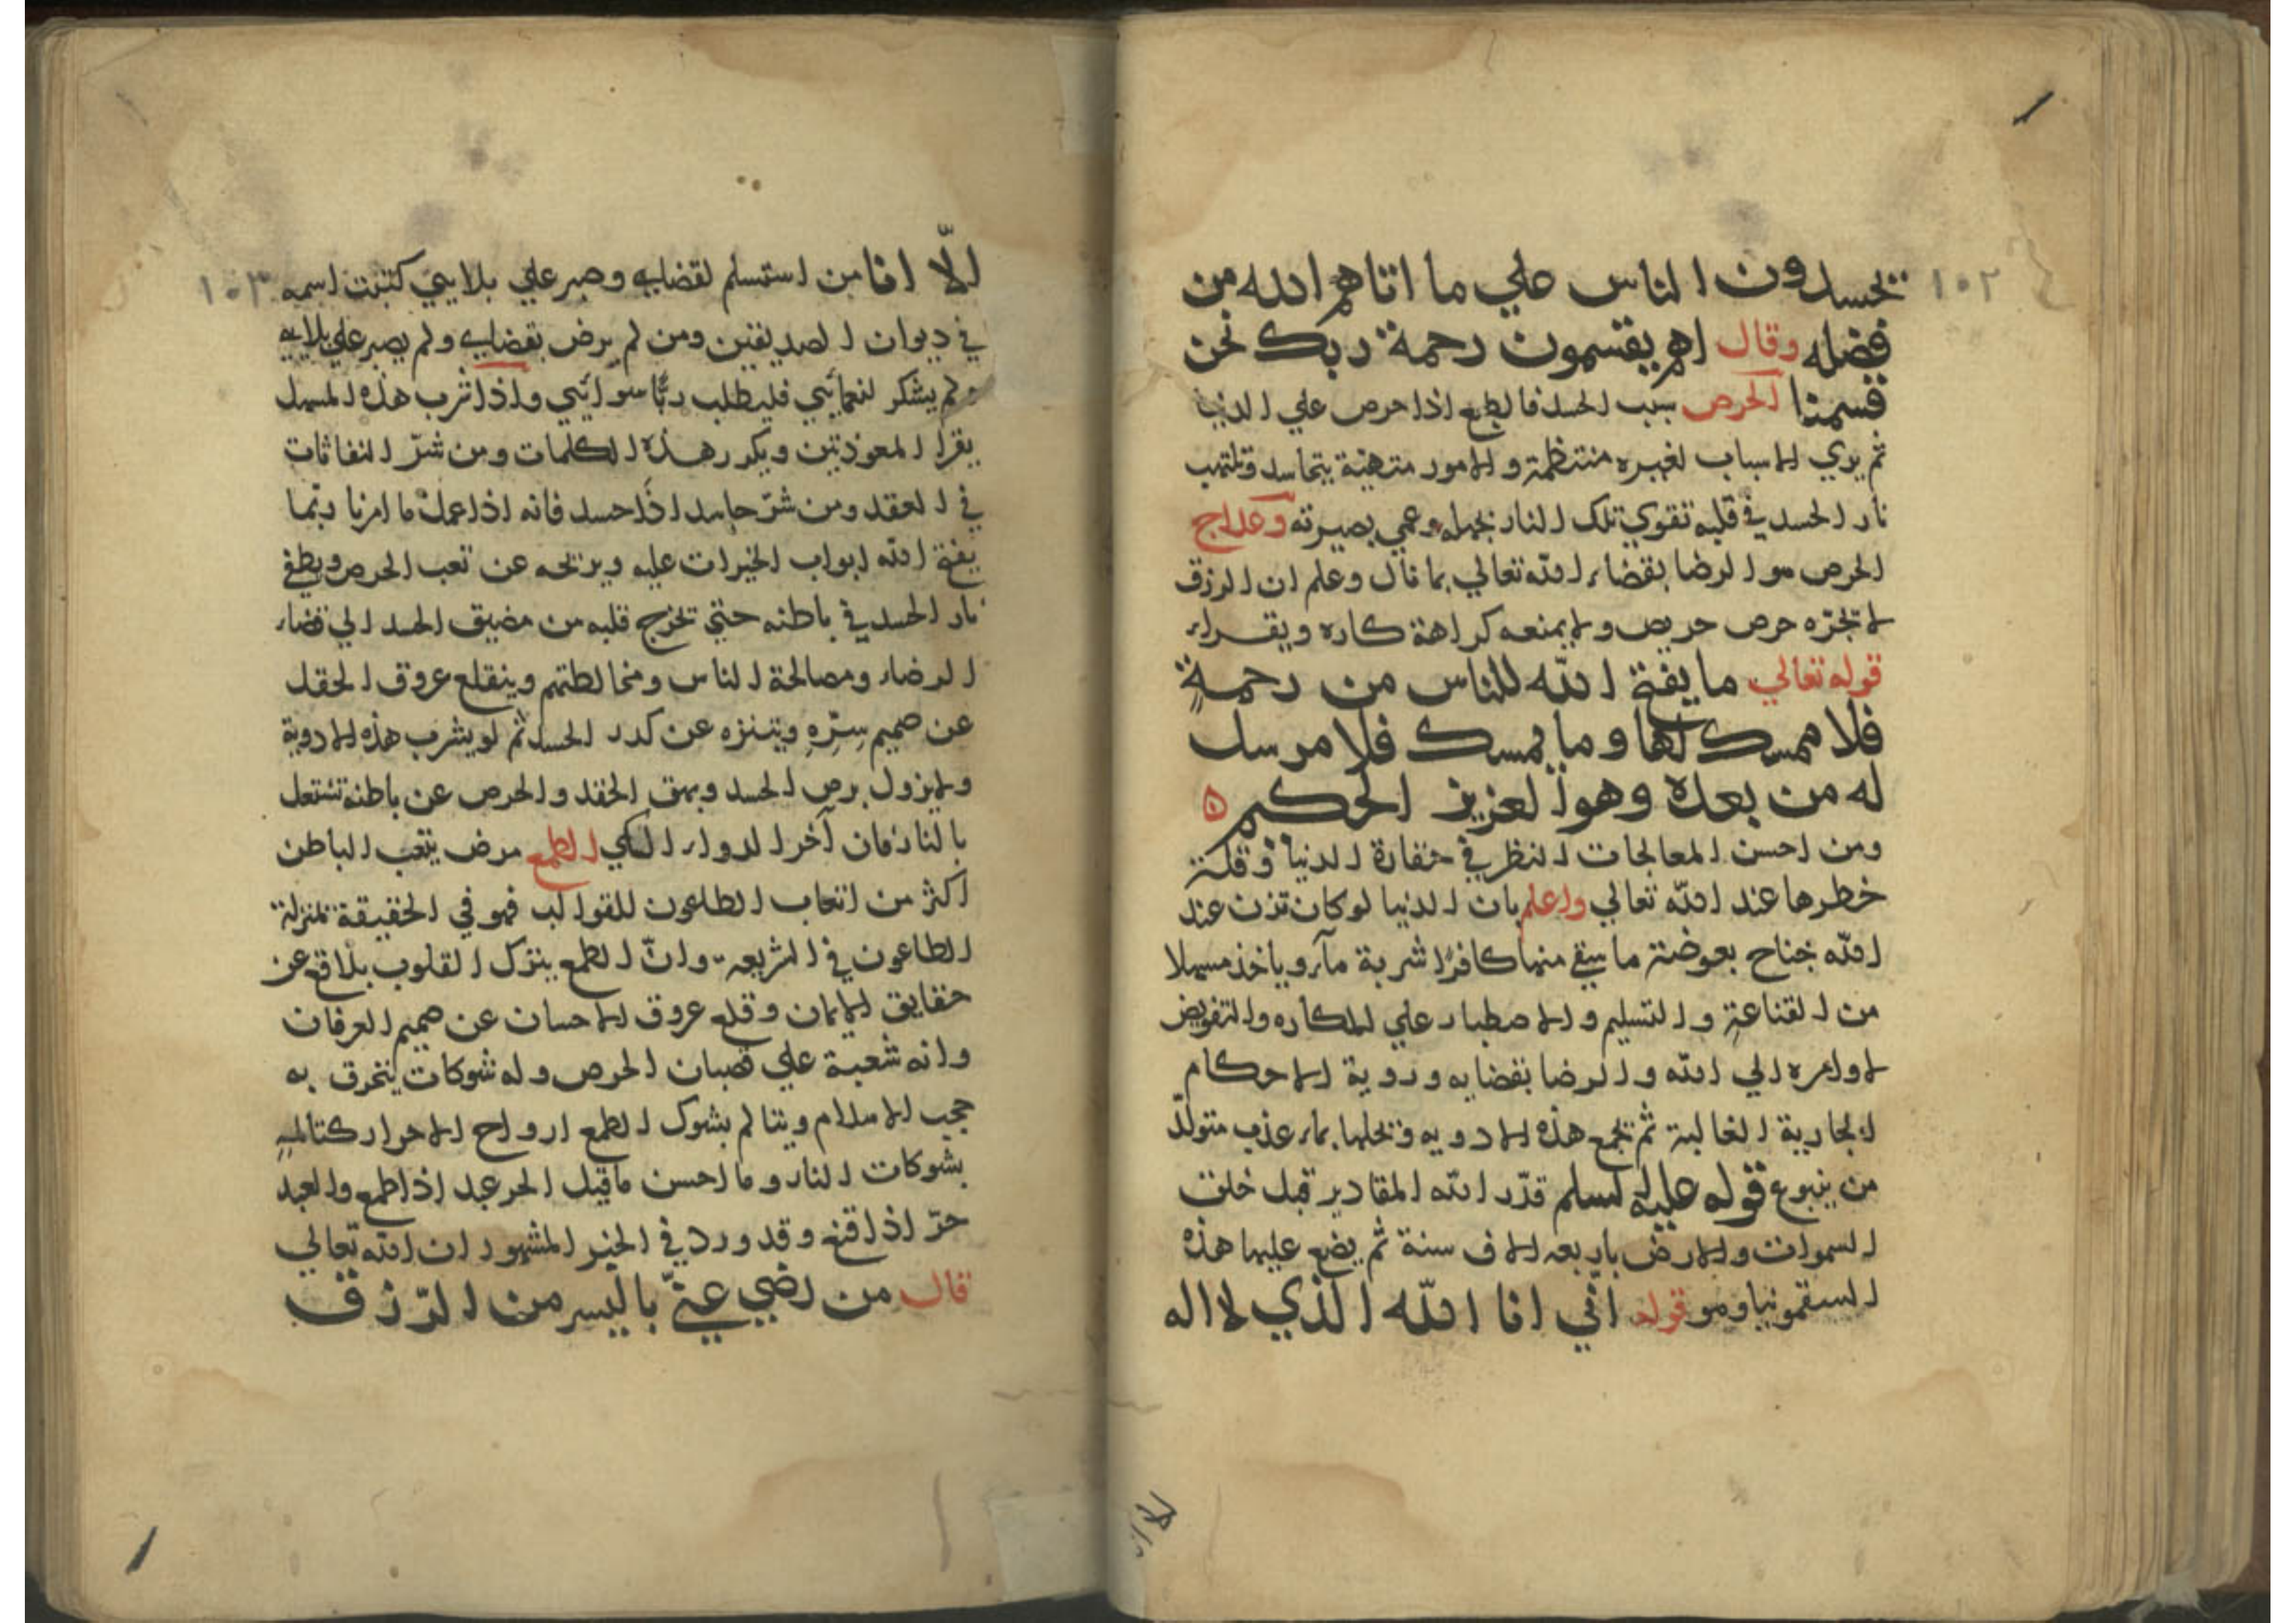 ١٠٢
تحسدون الناس علي ما اتاهم الله من
فضله وقال اهم يقسمون رحمة ربك نحن
قسمنا الحرص سبب الحسد فالطمع اذا حرص علي الدنيا
ثم يري الاسباب لغيره منتظمة والامور متهيئة يتحاسد وتلتهب
نار الحسد في قلبه تقوي تلك النار بجهله وعمي بصيرته وعلاج
الحرص هو الرضا بقضاء الله تعالي بما قال وعلم ان الرزق
لا تجره حرص حريص ولا يمنعه كراهة كاره ويقراء
قوله تعالي ما يفتح الله للناس من رحمة
فلا ممسك لها وما يمسك فلا مرسل
له من بعده وهو العزيز الحكيم ه
ومن احسن المعالجات النظر في حقارة الدنيا وقلة
خطرها عند الله تعالي واعلم بان الدنيا لو كان تزن عند
الله جناح بعوضة ما سقي منها كافرا شربة مآء وياخذ مسهلا
من القناعة والتسليم والاصطبار علي المكاره والتفويض
لاوامره الي الله والرضا بقضايه وروية الاحكام
الجارية الغالبة ثم تجمع هذه الادويه وتحلها بماء عذب متولّد
من ينبوع قوله عليه السلم قدّر الله المقادير قبل خلق
السموات والارض باربعه الاف سنة ثم يضع عليها هذه
السقمونيا وهو قوله انّي انا الله الذي لا اله
١٠٣
الّا انا من استسلم لقضايه وصبر علي بلايي كتبت اسمه
في ديوان الصديقين ومن لم يرض بقضايه ولم يصبر علي بلايه
ولم يشكر لنعمائي فليطلب ربّا سوائي واذا شرب هذه المسهل
يقرا المعوذتين ويكرر هذه الكلمات ومن شرّ النفاثات
في العقد ومن شرّ حاسد اذا حسد فانه اذا عمل ما امرنا ربّما
يفتح الله ابواب الخيرات عليه ويريحه عن تعب الحرص ويطفي
نار الحسد في باطنه حتي تخرج قلبه من مضيق الحسد الي فضاء
الرضاء ومصالحة الناس ومخالطتهم وينقلع عروق الحقد
عن صميم سرّه ويتنزه عن كدر الحسد ثم لو يشرب هذه الادوية
ولا يزول برص الحسد وبهق الحقد والحرص عن باطنه تشتعل
بالنار فان آخر الدواء الكي الطمع مرض يتعب الباطن
اكثر من اتعاب الطاعون للقوالب فهو في الحقيقة بمنزلة
الطاعون في الشريعه وانّ الطمع ينزل القلوب بلاقع عن
حقايق الايمان وقلع عروق الاحسان عن صميم العرفان
وانه شعبة علي قصبان الحرص وله شوكات يتخرق به
حجب الاسلام ويتالم بشوك الطمع ارواح الاحرار كتالمه
بشوكات النار وما احسن ما قيل الحر عبد اذا طمع والعبد
حرّ اذا قنع وقد ورد في الخبر المشهور ان الله تعالي
قال من رضي عنّي باليسر من الرّزق